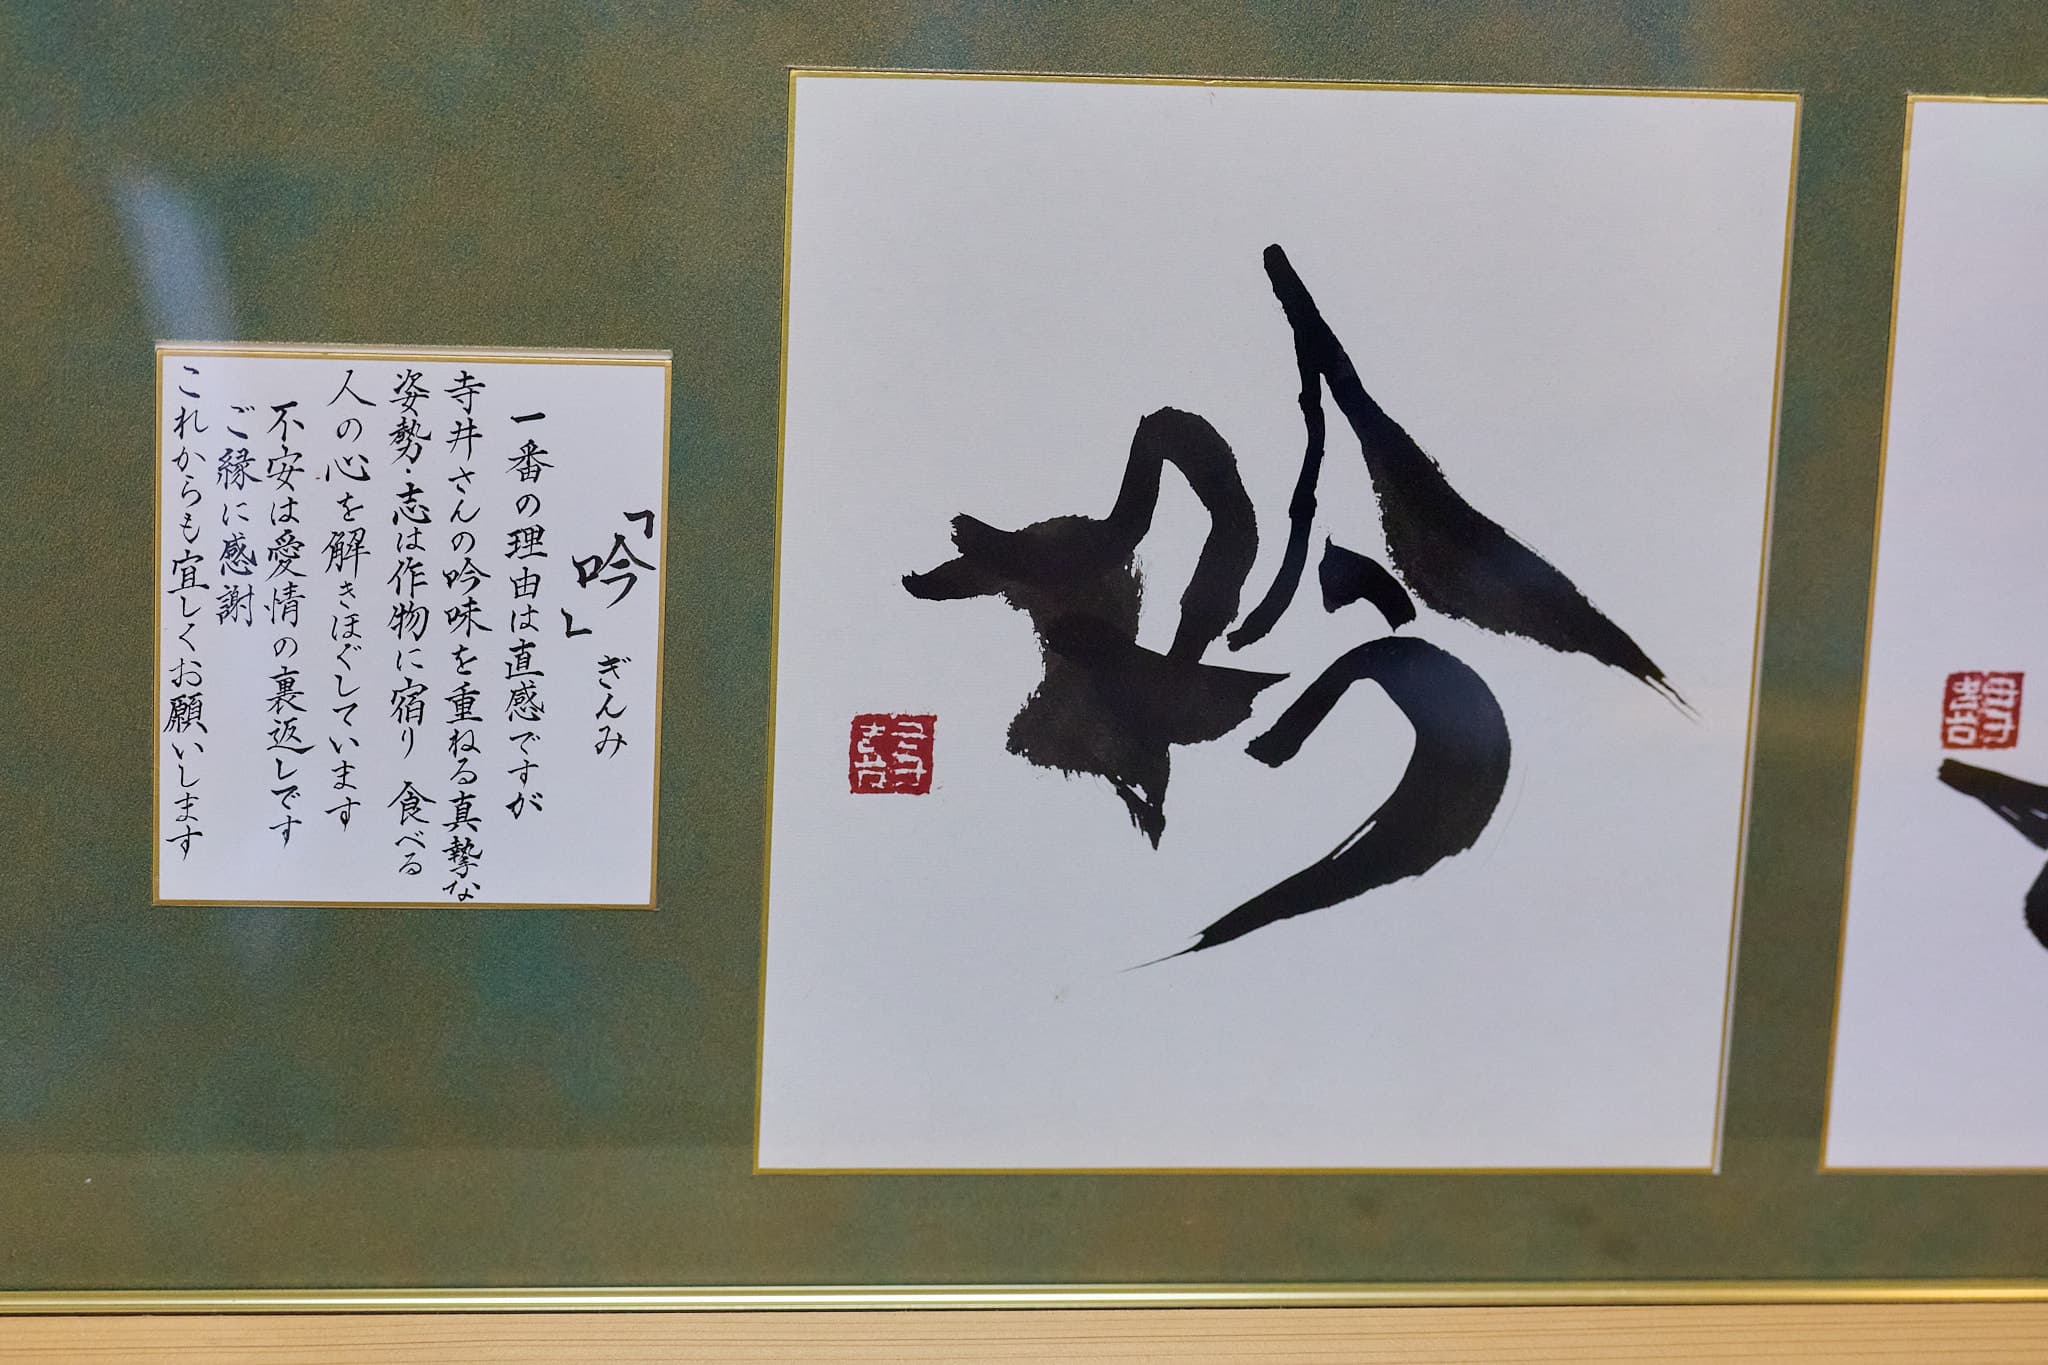 吟
「吟」ぎんみ
一番の理由は直感ですが
寺井さんの吟味を重ねる真摯な
姿勢・志は作物に宿り 食べる
人の心を解きほぐしています
不安は愛情の裏返しです
ご縁に感謝
これからも宜しくお願いします